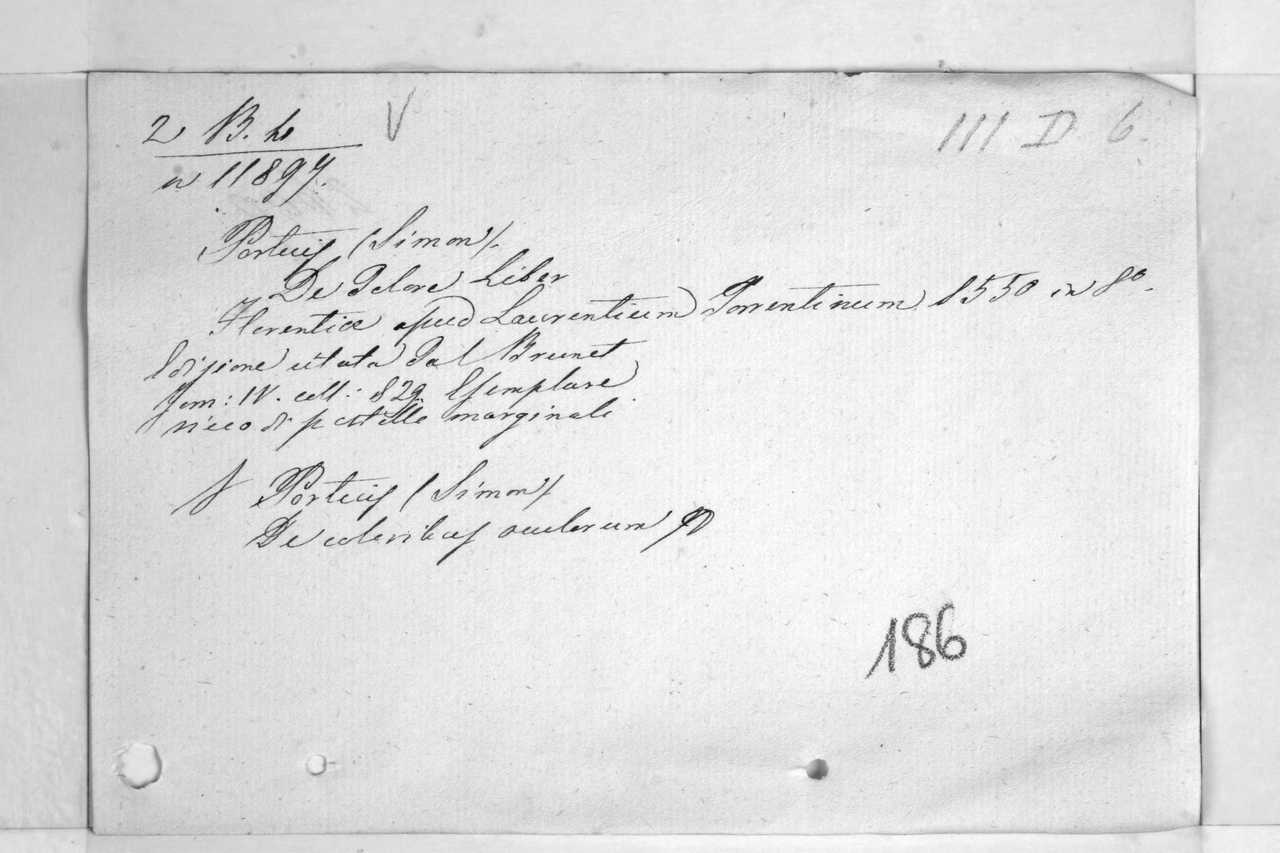 2 B. h
V
III D 6.
n 11897.
Portius (Simon).
De Dolore Liber
Florentiæ apud Laurentium Torrentinum 1550 in 8º.
Edizione citata dal Brunet
Tom: IV. coll: 829. Esemplare
ricco di postille marginali
Portius (Simon)
De coloribus oculorum
186